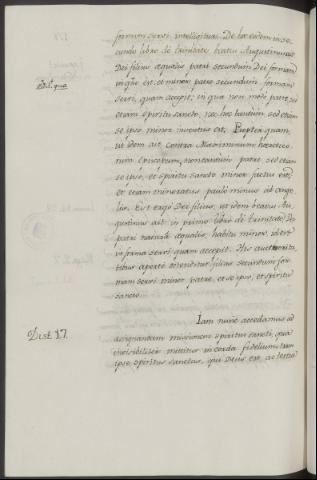 formam servi intelligitur. De hoc eidem in se-
cundo libro de trinitate beatus Augustinus
Dei filius æqualis patri secundum Dei formam
in qua est, et minor patre secundum formam
servi, quam accepit, in qua non modo patre, sed
etiam spiritu sancto, nec hoc tantum sed etiam
se ipso minor inventus est. Propterea quam
ut idem ait contra Maximinum hæretico-
rum Episcopum, non tantum patre, sed etiam
se ipso, et spiritu sancto minor factus est,
et etiam minoratus paulo minus ab ange-
lis. Est ergo Dei filius, ut idem beatus Au-
gustinus ait in primo libro de trinitate, Deo
patri natura æqualis, habitu minor, id est
in forma servi quam accepit. His auctorita-
tibus aperte ostenditur filius secundum for-
mam servi minor patre, et se ipso, et spiritu
sancto.
Dist. 17.
Iam nunc accedamus ad
assignandam missionem spiritus sancti, qua
invisibiliter mittitur in corda fidelium: nam
ipse spiritus sanctus, qui Deus est, ac tertia